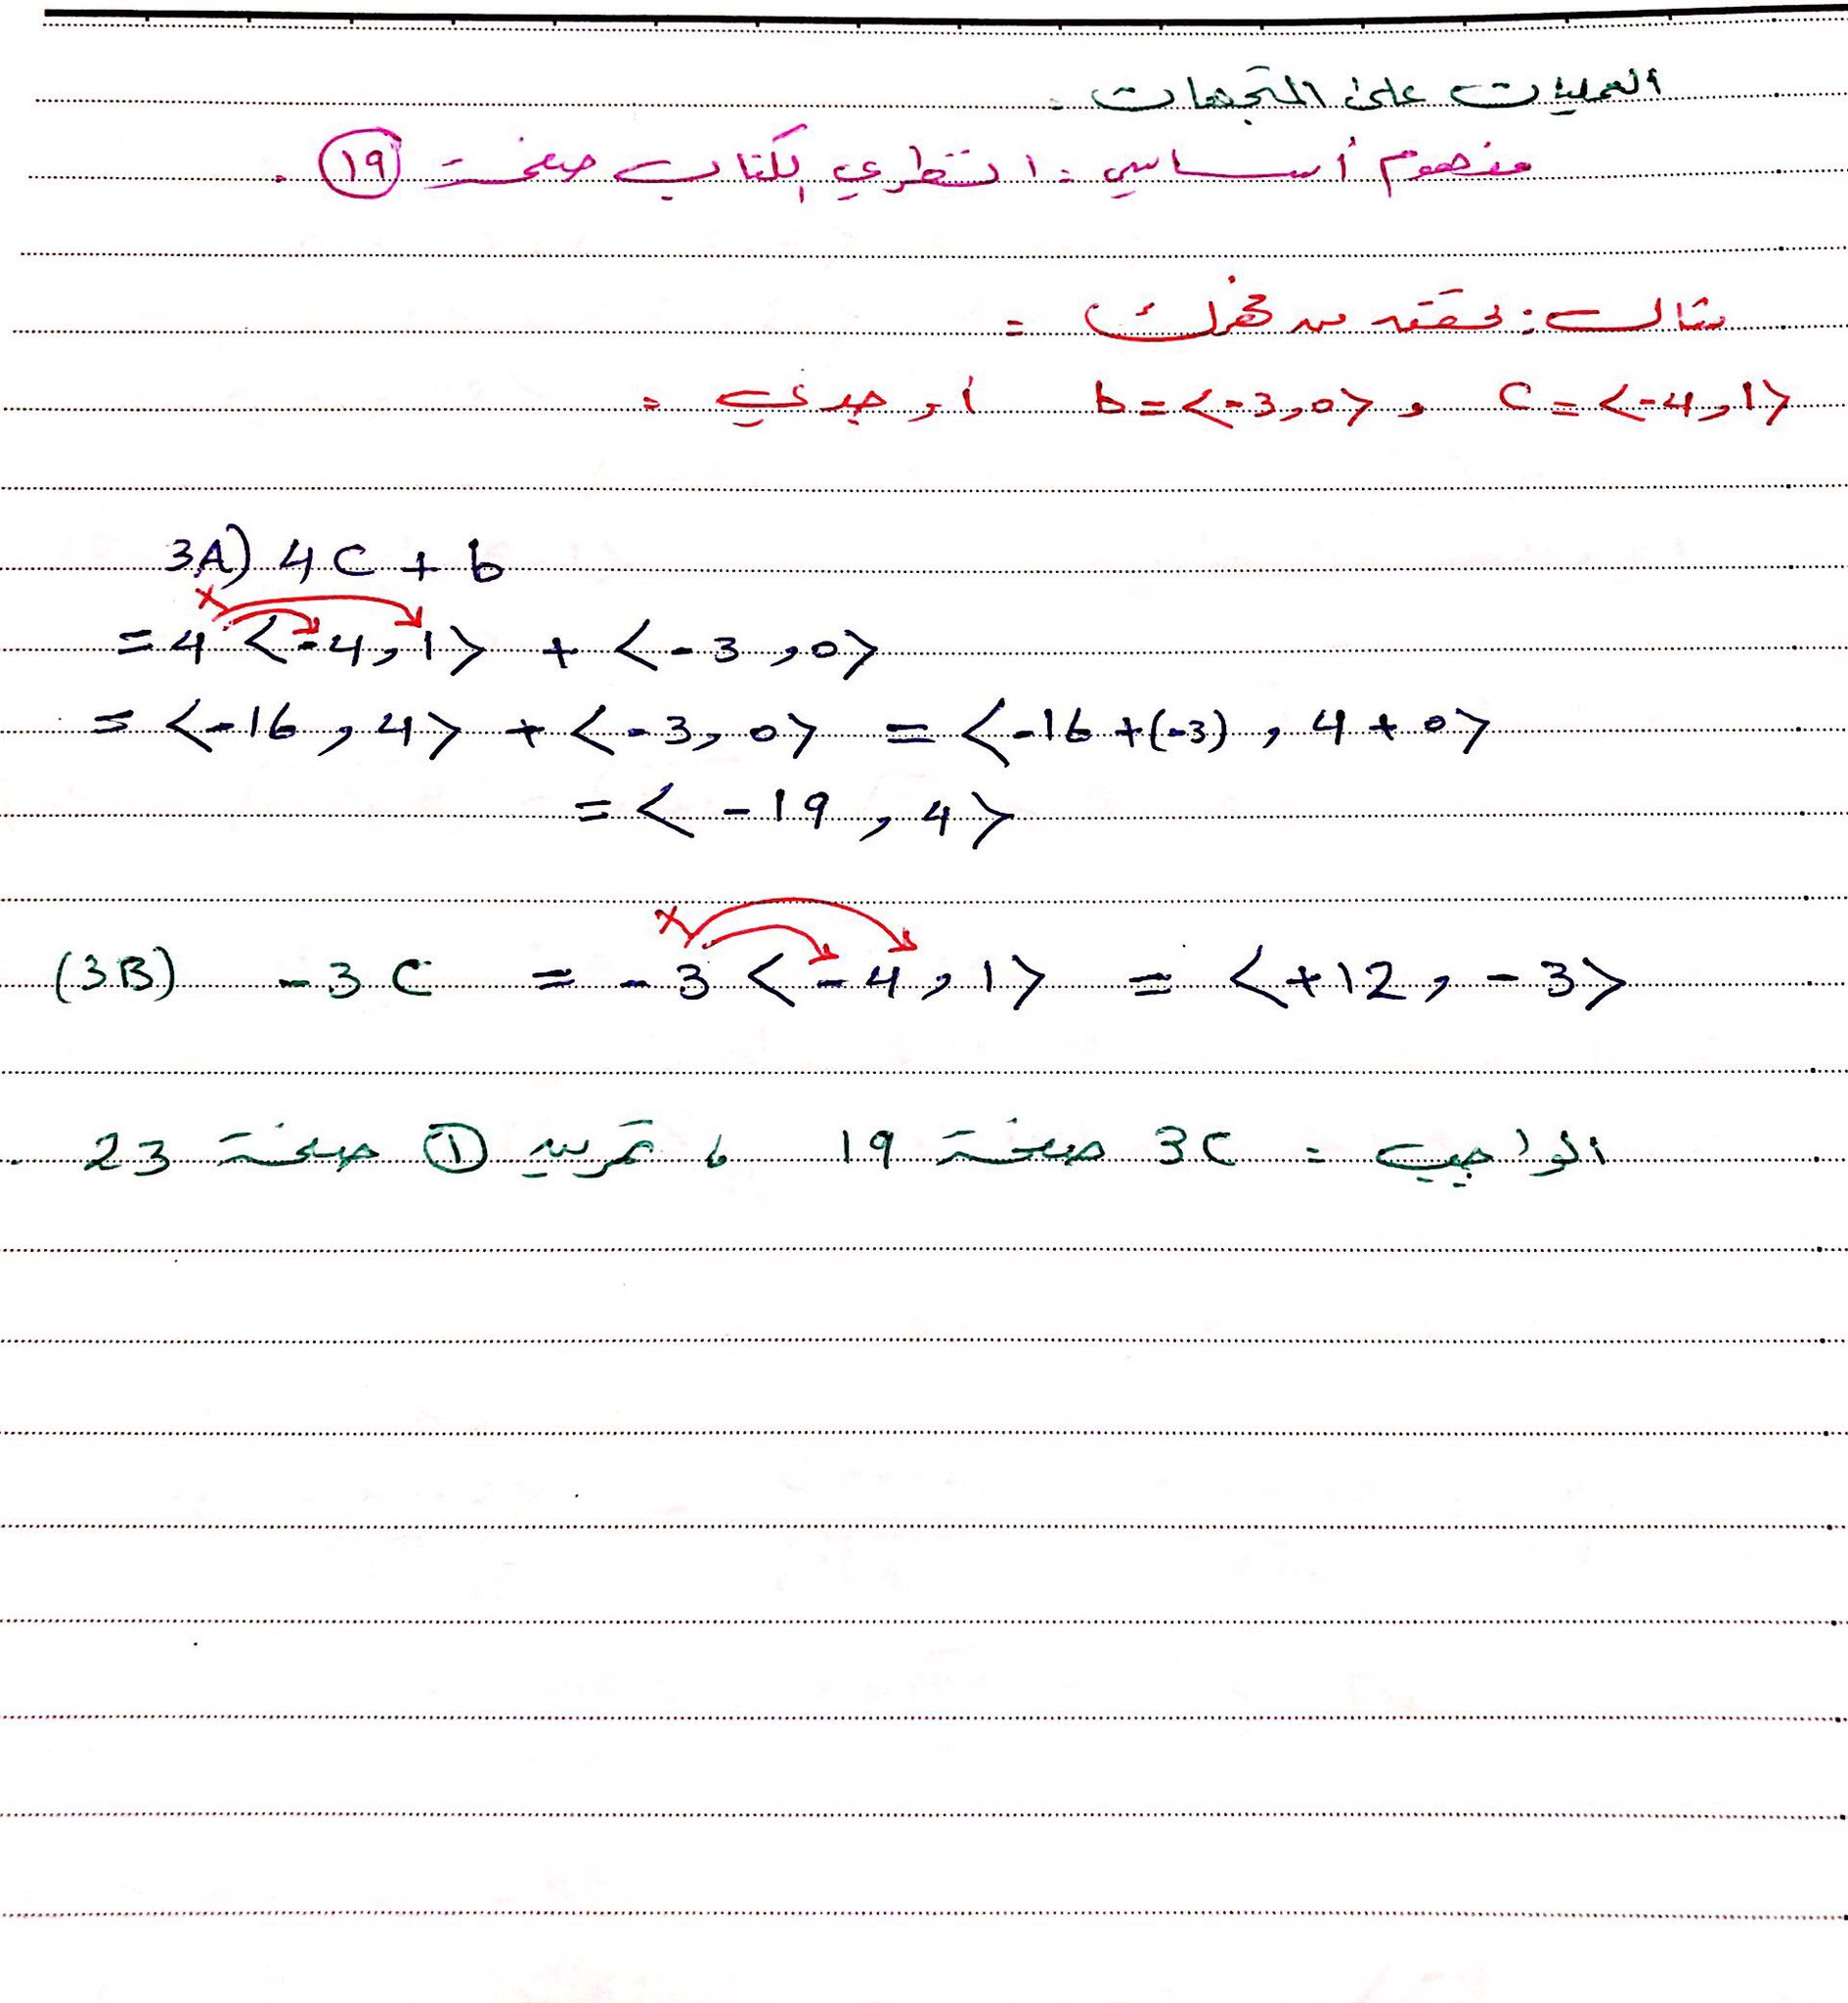 العمليات على المتجهات :
مفهوم أساسي : انظري الكتاب صفحة 19 .
مثال : تحققي من فهمك :
C = <-4, 1> , b = <-3, 0> أوجدي :
3A) 4C + b
= 4 <-4, 1> + <-3, 0>
= <-16, 4> + <-3, 0> = <-16 + (-3), 4 + 0>
= <-19, 4>
(3B) -3C = -3 <-4, 1> = <+12, -3>
الواجب : 3C صفحة 19 ، تمرين 1 صفحة 23 .